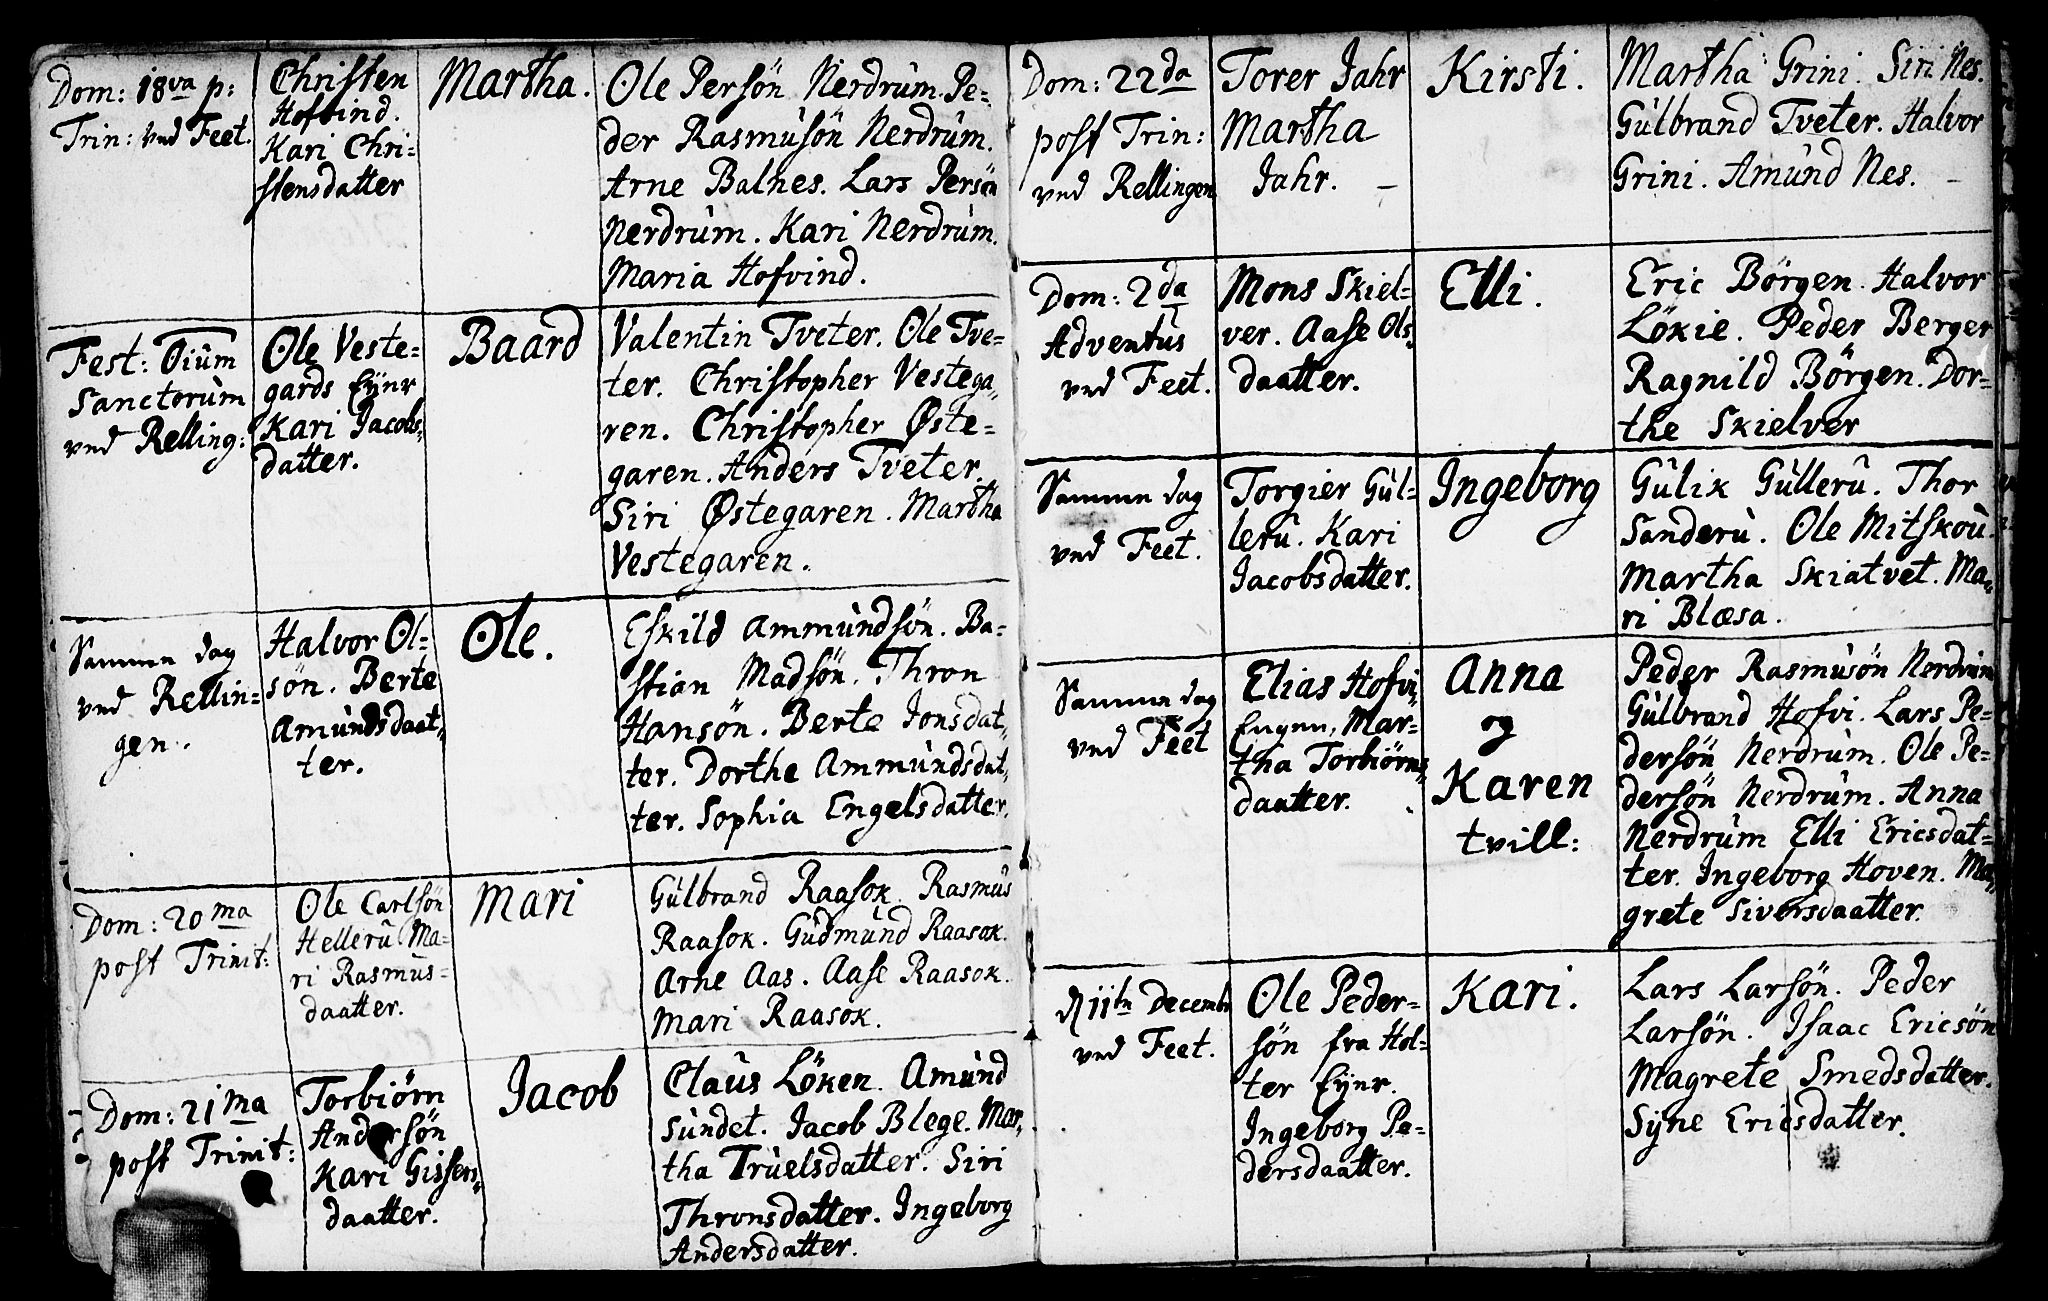 Dom: 18va p:
Trin: ved Feet.
Christen
Hofvind.
Kari Chri-
stensdatter
Martha.
Ole Persön Nerdrum. Pe-
der Rasmusön Nerdrum.
Arne Balnes. Lars Persön
Nerdrum. Kari Nerdrum.
Maria Hofvind.
Fest: Oium
Sanctorum
ved Relling:
Ole Veste-
gards Eÿnr
Kari Jacobs-
datter.
Baard
Valentin Tveter. Ole Tve-
ter. Christopher Vestega-
ren. Christopher Øste-
garen. Anders Tveter.
Siri Østegaren. Martha
Vestegaren.
Samme dag
ved Rellin-
gen.
Halvor Ol-
sön. Berte
Amundsdaat-
ter.
Ole.
Eskild Ammundsön. Ba-
stian Madsön. Thron
Hansön. Berte Jonsdat-
ter. Dorthe Ammundsdat-
ter. Sophia Engelsdatter.
Dom: 20ma
post Trinit:
Ole Carlsön
Helleru Ma-
ri Rasmus-
daatter.
Mari
Gulbrand Raasok. Rasmus
Raasok. Gudmund Raasok.
Arne Aas. Aase Raasok.
Mari Raasok.
Dom: 21ma
post Trinit:
Torbiörn
Andersön
Kari Gissers-
daatter.
Jacob
Claus Löken. Amund
Sundet. Jacob Blege. Mar-
tha Truelsdatter. Siri
Thronsdatter. Ingeborg
Andersdatter.
Dom: 22da
post Trin:
ved Rellingen
Torer Jahr
Martha
Jahr. -
Kirsti.
Martha Grini. Siri Nes.
Gulbrand Tveter. Halvor
Grini. Amund Nes. -
Dom: 2da
Adventus
ved Feet.
Mons Skiel-
ver. Aase Ols-
daatter.
Elli.
Eric Börgen. Halvor
Lökie. Peder Berger
Ragnild Börgen. Dor-
the Skielver
Samme dag
ved Feet.
Torgier Gul-
leru. Kari
Jacobsdatter.
Ingeborg
Gulik Gulleru. Thor
Sanderu. Ole Mitskou.
Martha Skiatvet. Ma-
ri Blæsa.
Samme dag
ved Feet
Elias Hofvi
Mar-
tha Torbiörns-
daatter.
Anna
og
Karen
tvill:
Peder Rasmusön Nerdrum
Gulbrand Hofvi. Lars Pe-
dersön Nerdrum. Ole Pe-
dersön Nerdrum. Anna
Nerdrum Elli Ericsdat-
ter. Ingeborg Hoven. Ma-
grete Siversdaatter.
d 11te Decembr
ved Feet.
Ole Peder-
sön fra Hol-
ter Eÿnr.
Ingeborg Pe-
dersdaatter.
Kari.
Lars Larsön. Peder
Larsön. Isaac Ericsön
Magrete Smedsdatter.
Sÿne Ericsdatter.